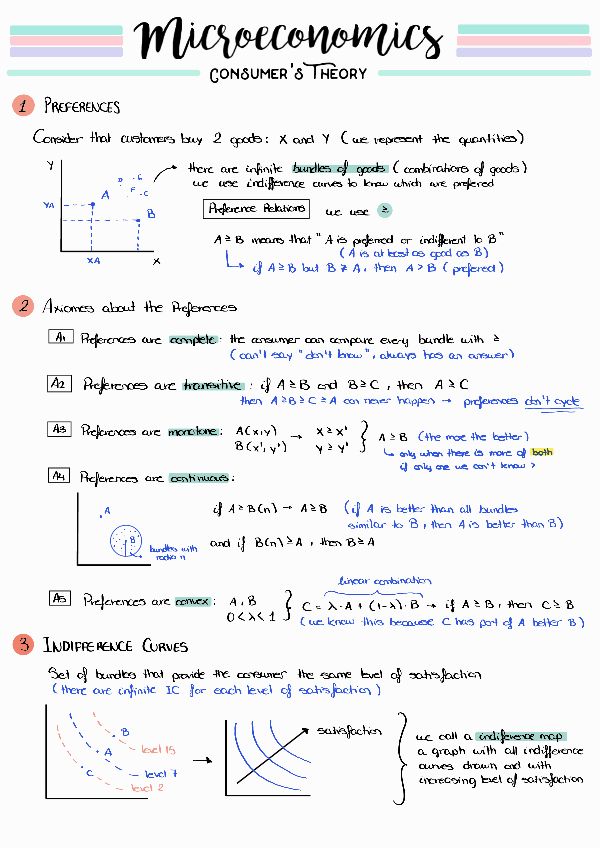 Microeconomics
CONSUMER'S THEORY
1 PREFERENCES
Consider that customers buy 2 goods: X and Y (we represent the quantities)
Y
there are infinite bundles of goods (combinations of goods)
we use indifference curves to know which are preferred
D G
F C
A
YA
B
XA
X
Preference Relations we use ≥
A ≥ B means that "A is preferred or indifferent to B"
(A is at least as good as B)
if A ≥ B but B ≱ A, then A > B (preferred)
2 Axiomes about the Preferences
A1 Preferences are complete: the consumer can compare every bundle with ≥
(can't say "don't know", always has an answer)
A2 Preferences are transitive: if A ≥ B and B ≥ C, then A ≥ C
then A ≥ B ≥ C ≥ A can never happen → preferences don't cycle
A3 Preferences are monotone: A(x,y) → x ≥ x' } A ≥ B (the more the better)
B(x',y') y ≥ y'
only when there is more of both
if only one we can't know >
A4 Preferences are continuous:
A
B
bundles with
radio n
if A ≥ B(n) → A ≥ B (if A is better than all bundles
similar to B, then A is better than B)
and if B(n) ≥ A, then B ≥ A
linear combination
A5 Preferences are convex: A, B } C = λ·A + (1-λ)·B → if A ≥ B, then C ≥ B
0 < λ < 1 (we know this because C has part of A better B)
3 INDIFFERENCE CURVES
Set of bundles that provide the consumer the same level of satisfaction
(there are infinite IC for each level of satisfaction)
B
A
C
level 15
level 7
level 2
satisfaction
we call a indiference map
a graph with all indifference
curves drawn and with
increasing level of satisfaction